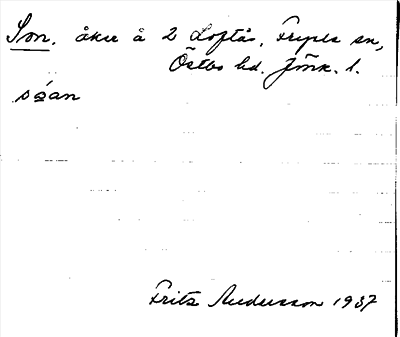 Son. åker å 2 Loftås, Fryele sn,
Östbo hd. Jönk. l.
sóan
Fritz Andersson 1937